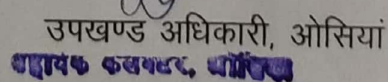 उपखण्ड अधिकारी, ओसियां
सहायक कलक्टर, ओसियां